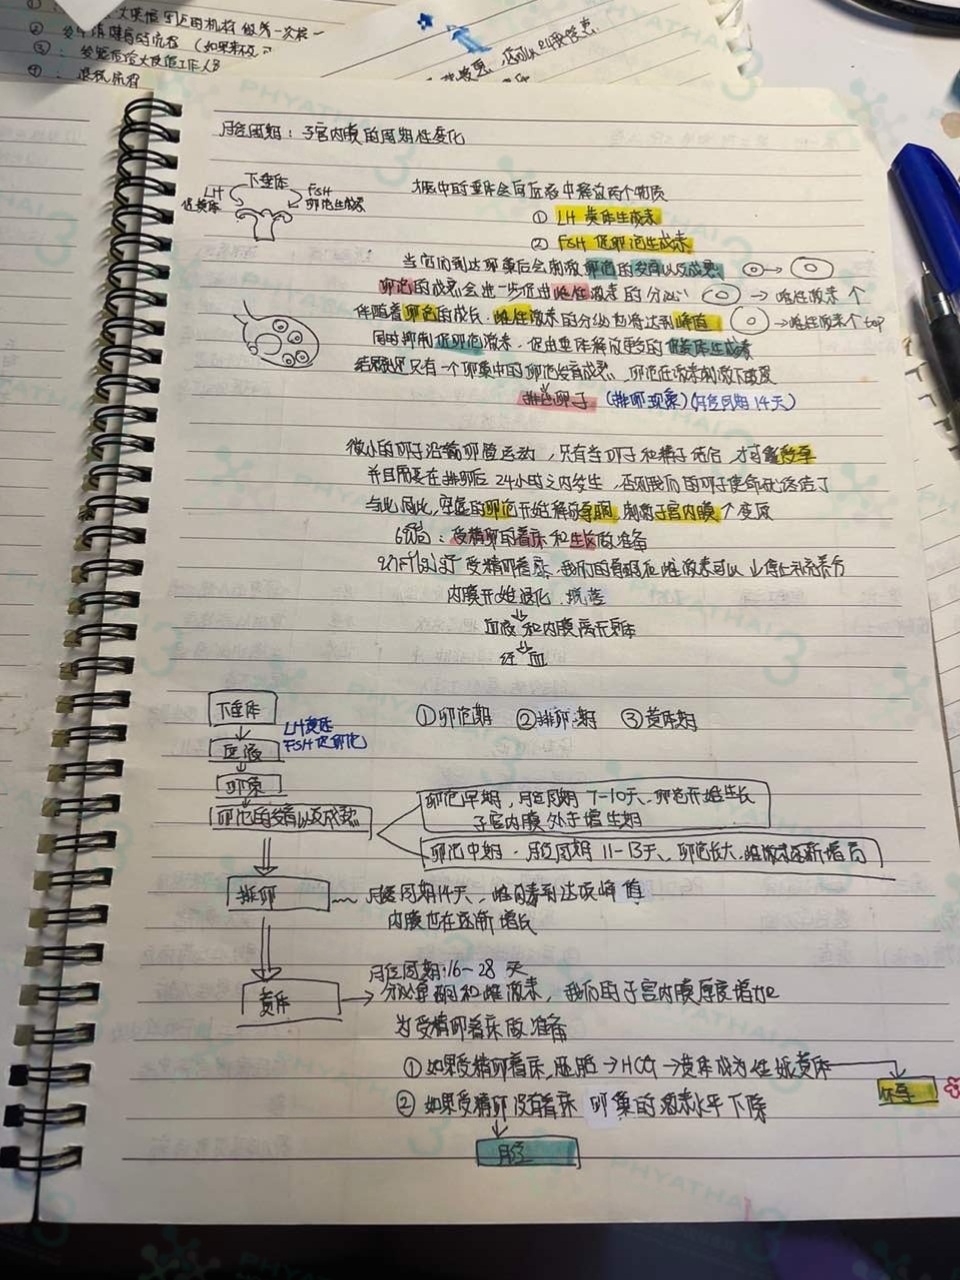 ②
③
④
月经周期：子宫内膜的周期性变化
下垂体
LH
FSH
卵泡生成素
大脑中的垂体会向血液中释放两个物质
① LH 黄体生成素
② FSH 促卵泡生成素
当它们到达卵巢后会刺激卵泡的发育以及成熟
卵泡的成熟会进一步促进雌性激素的分泌 → 雌性激素个
伴随着卵泡的成长，雌性激素的分泌也将达到峰值 → 雌性激素个top
同时抑制促卵泡激素，促进垂体释放更多的促黄体生成素
只有一个卵巢中的卵泡发育成熟，卵泡在激素刺激下
排出卵子 (排卵现象)(月经周期14天)
微小的卵子沿输卵管运动，只有当卵子和精子结合，才可能怀孕
并且需要在排卵后24小时之内发生，否则我们的卵子使命就终结了
与此同时，空虚的卵泡开始释放孕酮，刺激子宫内膜个变厚
受精卵的着床和生长做准备
受精卵着床，我们的孕酮和雌激素可以停止补充养分
内膜开始退化
血液和内膜离开身体
经血
下垂体
LH
FSH
血液
卵巢
卵泡的发育以及成熟
①卵泡期 ②排卵期 ③黄体期
卵泡早期，月经周期7-10天，卵泡开始生长
子宫内膜处于增生期
卵泡中期，月经周期11-13天，卵泡长大，雌激素逐渐增高
排卵
月经周期14天，雌激素到达顶峰值
内膜也在逐渐增长
月经周期:16-28天
黄体 → 分泌孕酮和雌激素，我们的子宫内膜厚度增加
为受精卵着床做准备
①如果受精卵着床，胚胎→HCG→黄体成为妊娠黄体
怀孕
②如果受精卵没有着床 卵巢的激素水平下降
月经
PHYATHAI 3